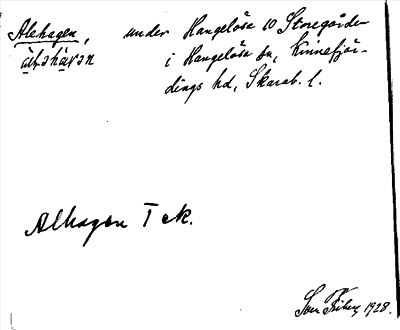 Alehagen, under Hangelösa 10 Storegården
i Hangelösa sn, Kinnefjär-
dings hd, Skarab. l.
Alhagen T ek.
Sven 1928.